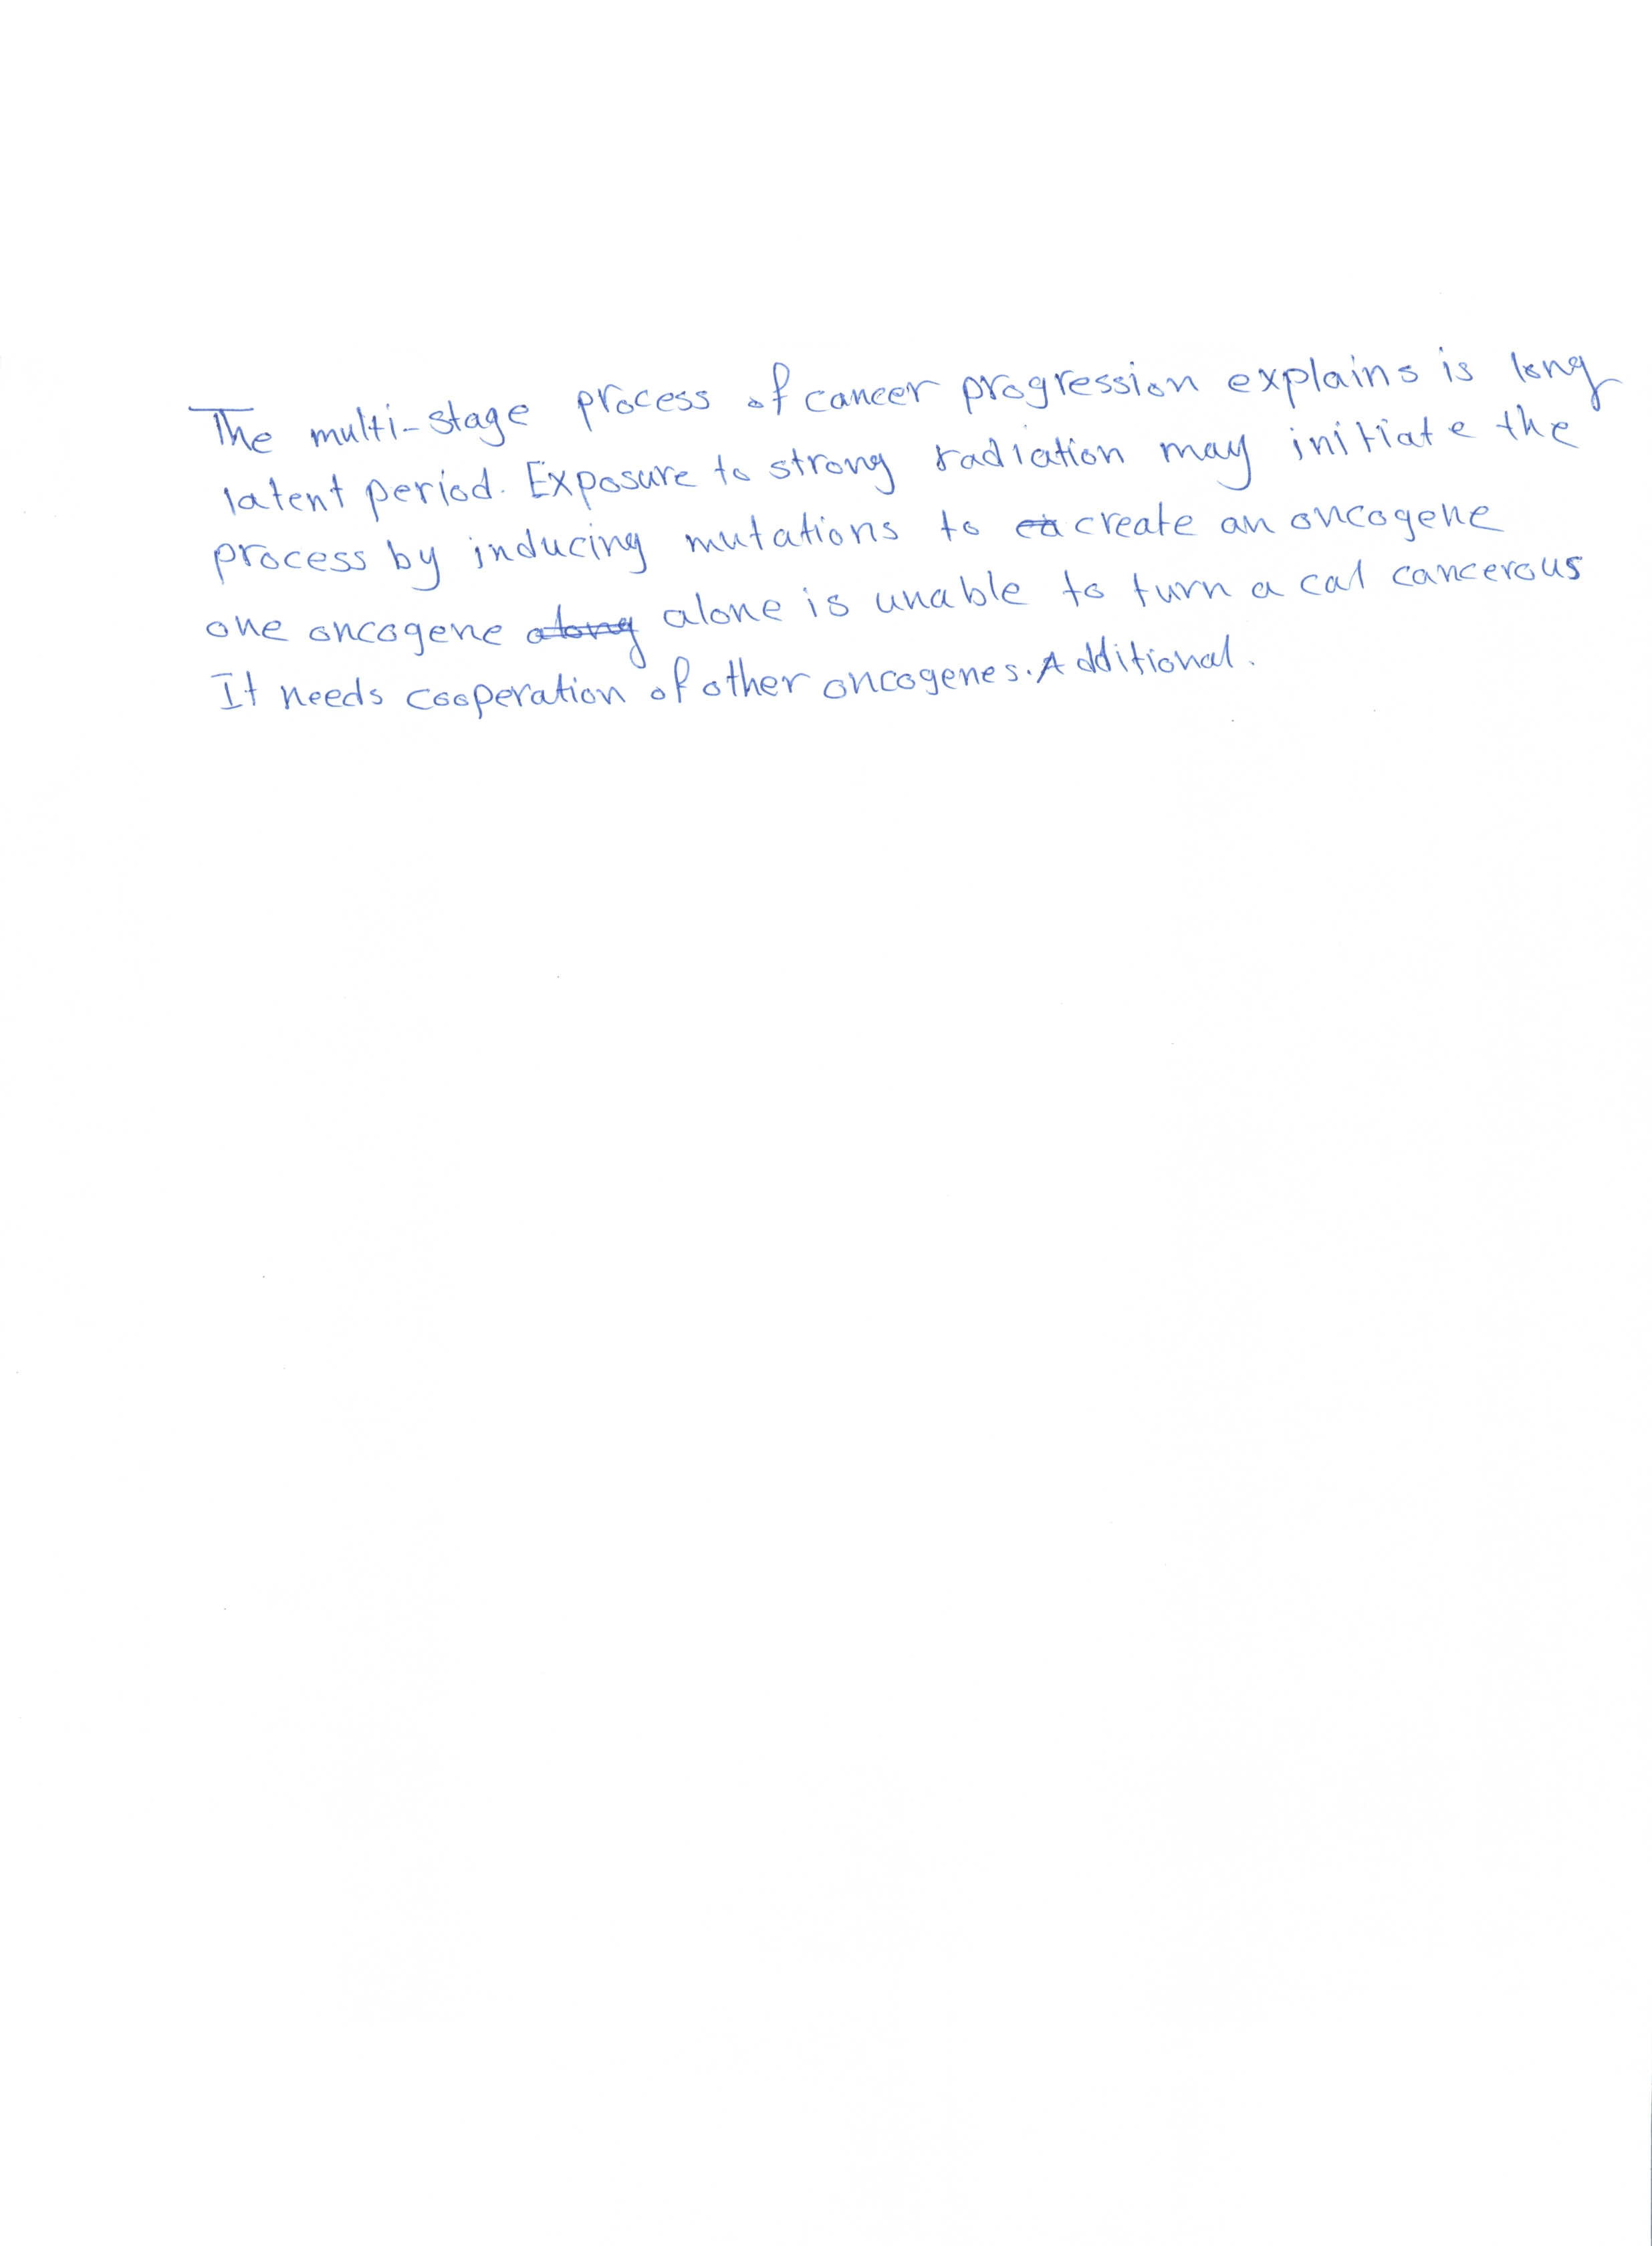 The multi-stage process of cancer progression explains is long
latent period. Exposure to strong radiation may initiate the
process by inducing mutations to create an oncogene
one oncogene along alone is unable to turn a cal cancerous
It needs cooperation of other oncogenes. Additional.